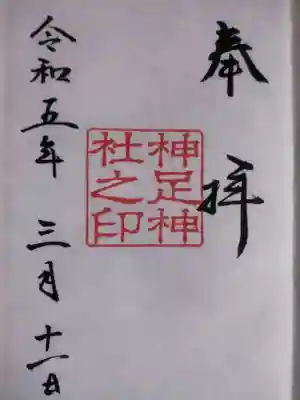 奉拝
神足神
社之印
令和五年 三月 十一日